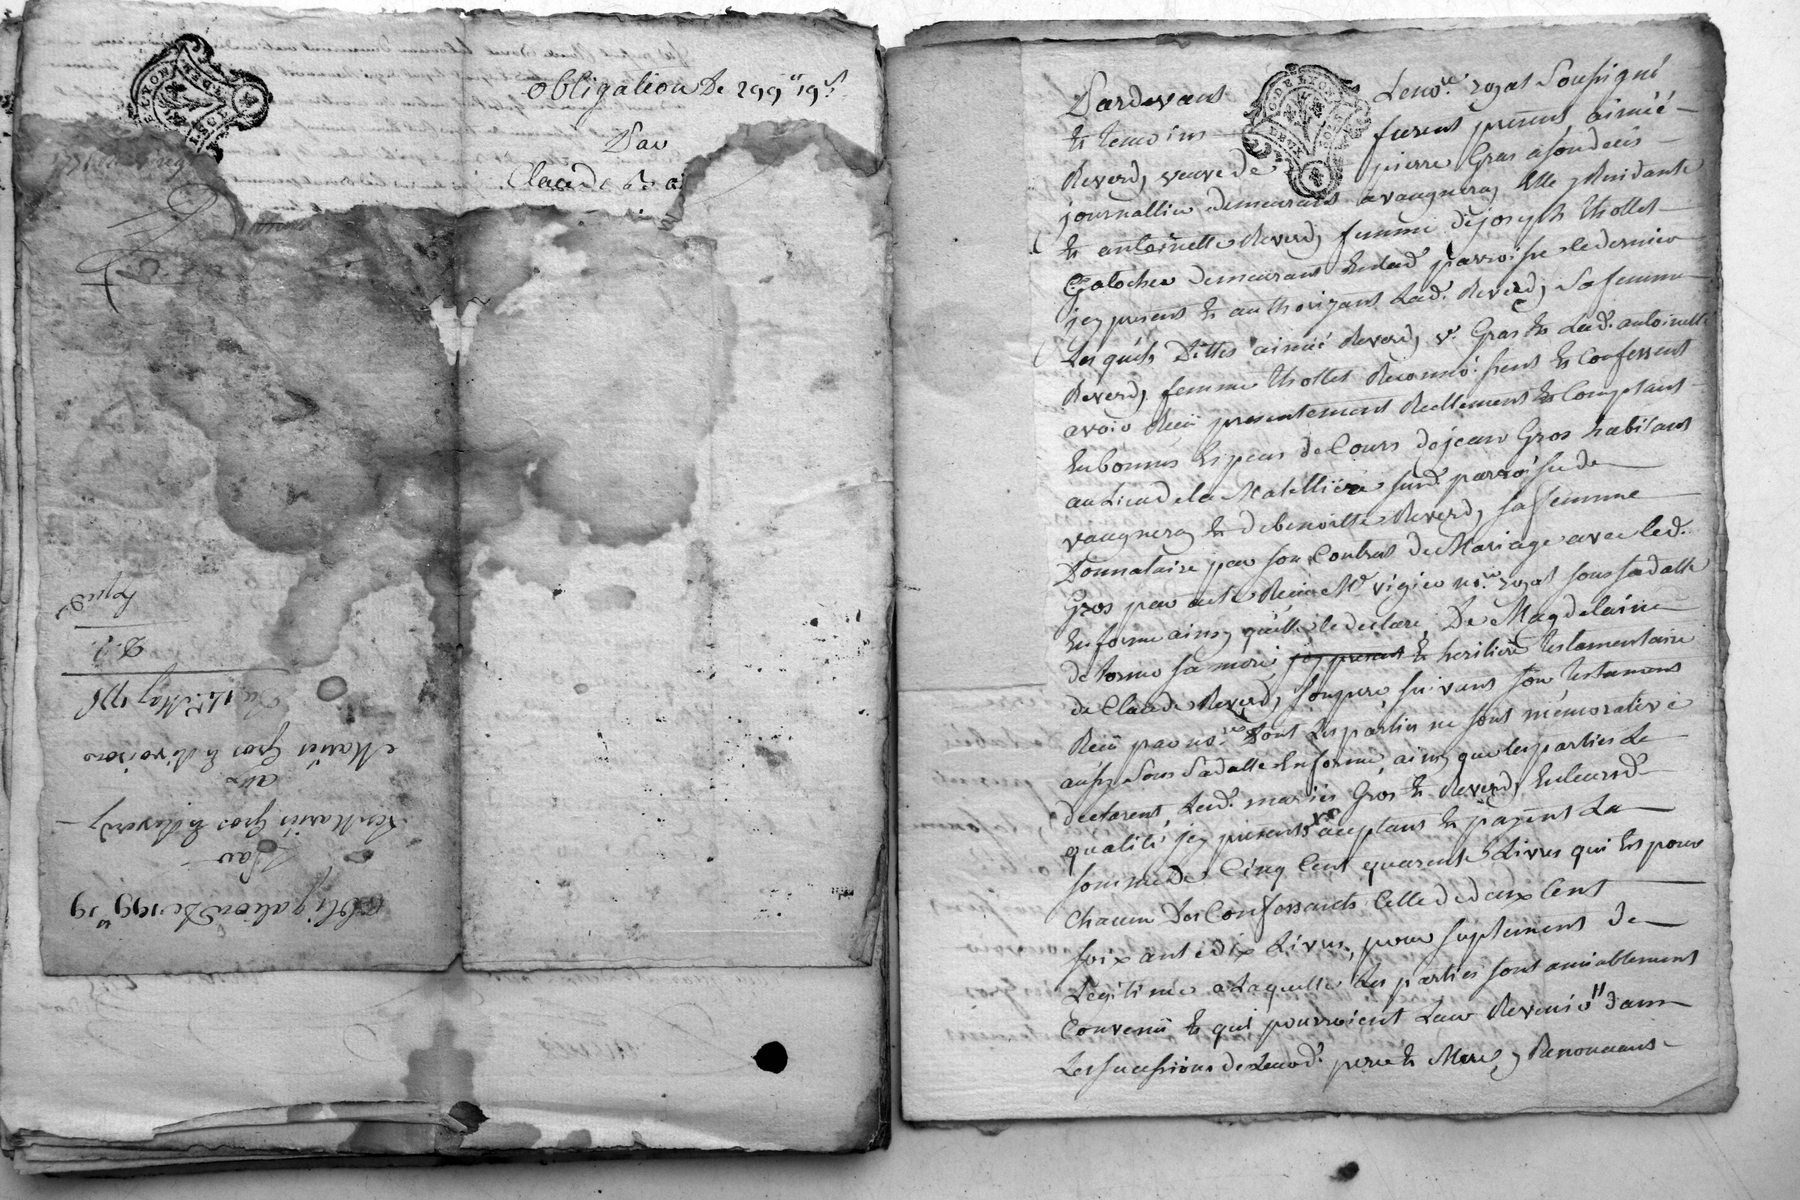 obligation De 299ᵗᵗ 19ˢ
Par
Claude
obligation De 199ᵗᵗ 19
Par
Les Mariés Gros & Reverdy
aux
Mariés Gros &
Du 12ᵉ May 1776
GDE LYON
DEUX SOLS
Pardevant Le noʳᵉ royal Soussigné
& temoins furent presents aimeé
Reverdy veuve de pierre Gras a son deces
journallier demeurant a vaugneray Elle y Residante
& antoinette Reverdy femme de joseph thollet
Galocher demeurant En lad. parroisse le dernier
jcy present & authorizant Lad. Reverdy Sa femme
Lesquels Dittes aimeé Reverdy vᵉ Gras & Lad. antoinette
Reverdy femme thollet Reconnoissent & Confessent
avoir Reçû presentement Reellement & Comptant
En bonnes Especes de Cours de jean Gros habitant
au Lieu de la Matelliere susd. parroisse de
vaugneray & de benoitte Reverdy sa femme
Donnataire par son Contrat de Mariage avec led.
Gros par acte Reçu Mᵉ vigier noʳᵉ royal sous sa datte
En forme ainsy quelle le declare De Magdelaine
delorme sa mere jcy present & heritiere testamentaire
de Claude Reverdy son pere suivant son testament
Reçû par noʳᵉ Dont Les parties ne sont memorative
aussy Sous Sa datte En forme ainsy que les parties Le
declarent, Lesd. mariés Gros & Reverdy En leursd.
qualités jcy presents acceptant & payent La
somme de Cinq Cent quarente Livres qui Est pour
Chacune Des Confessantes Celle de deux Cent
soixante dix Livres, pour suplement de
Légitime a Laquelle Les parties sont amiablement
Convenû & qui pourroient Leur Revenir dans
Les successions de Leursd. pere & Mere, y Renonceants